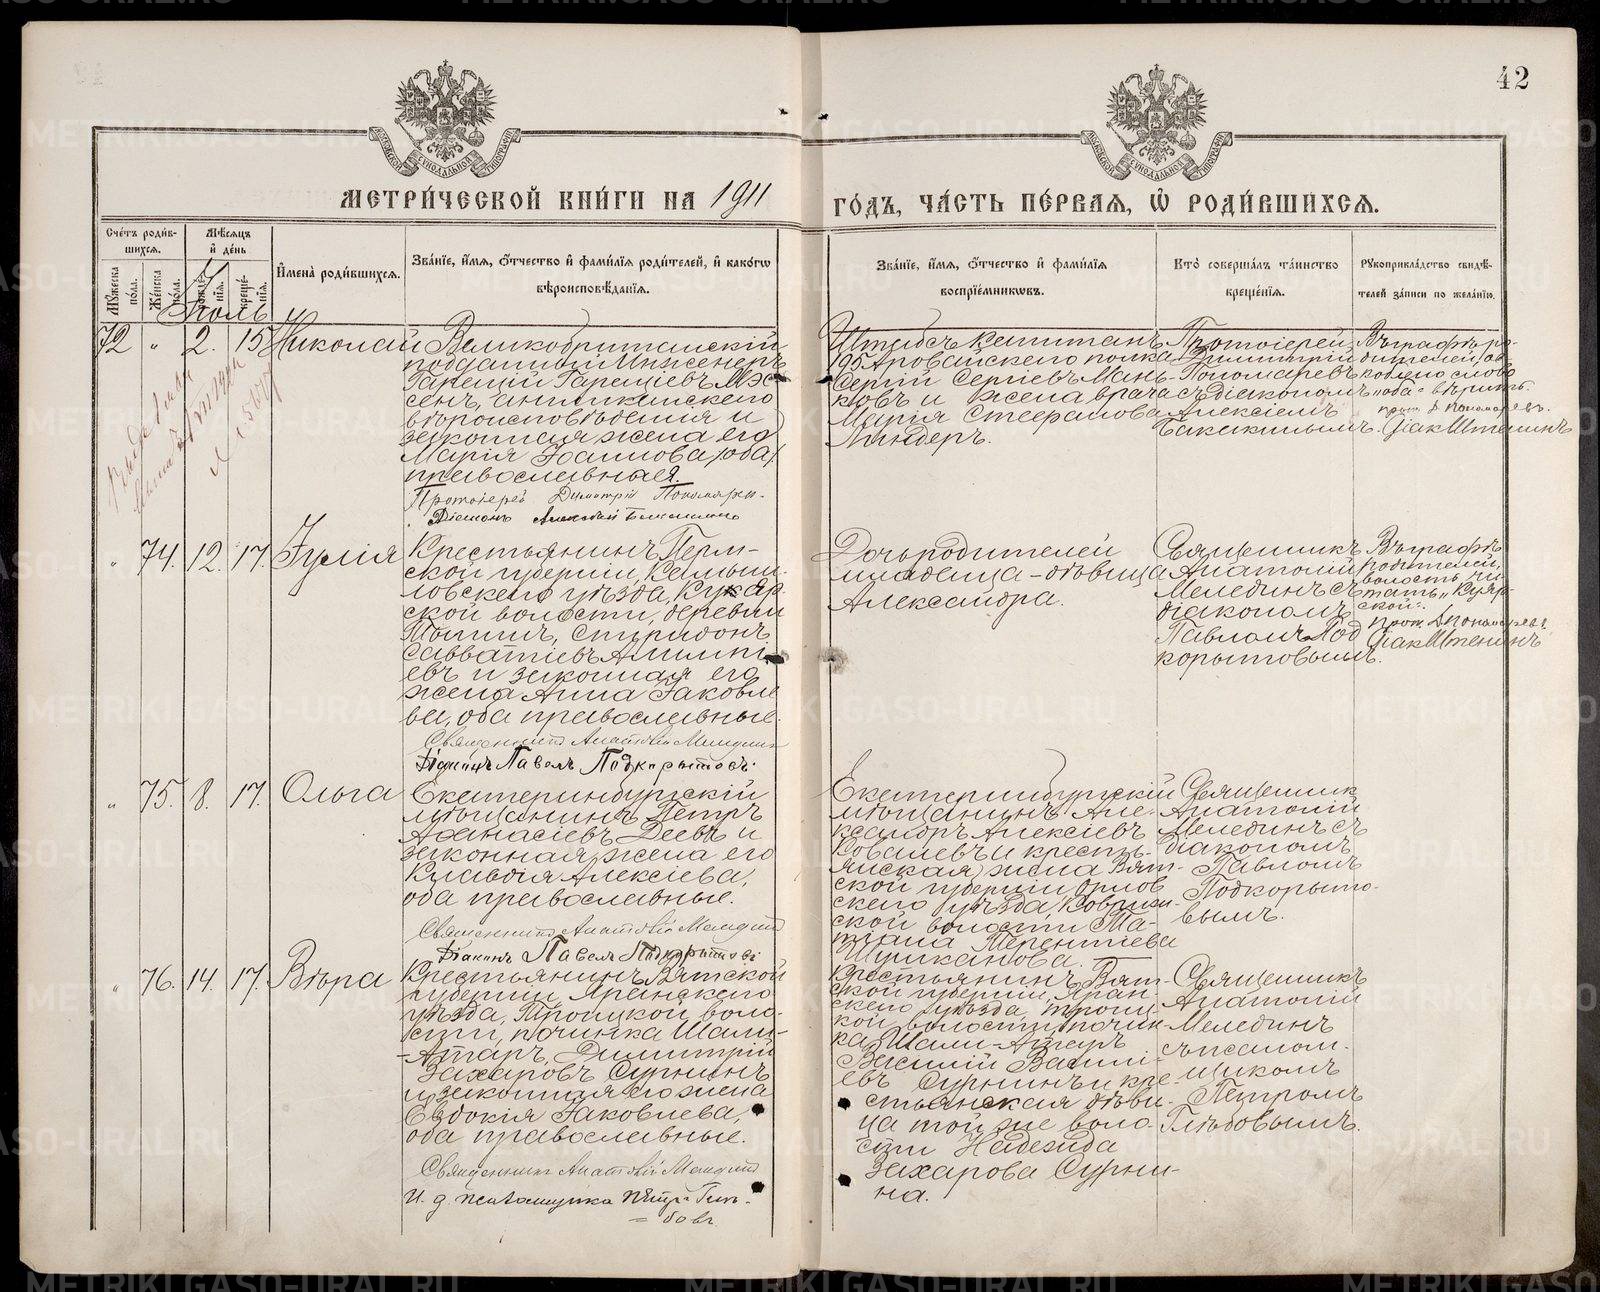 42
МЕТРИ́ЧЕСКОЙ КНИ́ГИ НА 1911 ГО́ДЪ, ЧА́СТЬ ПЕ́РВАЯ, Ѽ РОДИ́ВШИХСЯ.
Сче́тъ роди́в-
шихся.
Мѣ́сяцъ
и҆ де́нь
Мꙋ́жеска
по́ла.
Же́нска
по́ла.
рожде́-
нїѧ.
креще́-
нїѧ.
И҆мена̀ роди́вшихсѧ.
Зва́нїе, и҆́мѧ, ѻ҆́тчество и҆ фами́лїѧ роди́телей, и҆ како́гѡ
вѣроисповѣ́данїѧ.
Зва́нїе, и҆́мѧ, ѻ҆́тчество и҆ фами́лїѧ
воспрїе́мникѡвъ.
Кто̀ соверша́лъ та́инство
креще́нїѧ.
Рꙋкоприкла́дство свидѣ́-
телей за́писи по жела́нїю.
Іюль
72 " 2. 15 Николай
Великобританскій
подданный Инженеръ
сенъ, англиканскаго
вѣроисповѣденія и
законная жена его
Марія Іоаннова /оба/
православная.
Протоіерей Димитрій Пономаре-
Діаконъ Алексѣй
Штабсъ Капитанъ
195 Аровайскаго полка
Сергій Сергіевъ Мань-
ковъ и жена врача
Марія Стефанова
Линдеръ.
Протоіерей
Димитрій
Пономаревъ
съ діакономъ
Алексіемъ
Въ графѣ ро-
дителей
слово
"оба" вѣрить.
прот. Д. Пономаревъ.
Діак Штенинъ
" 74. 12. 17. Іулія
Крестьянинъ Перм-
ской губерніи, Камыш-
ловскаго уѣзда, Куяр-
ской волости, деревни
Спиридонъ
Савватіевъ
евъ и законная его
жена Анна Іаковле
ва, оба православные.
Священникъ Анатолій Мелединъ
Діаконъ Павелъ Подкорытовъ.
Дочь родителей
младенца - дѣвица
Александра.
Священникъ
Анатолій
Мелединъ съ
діакономъ
Павломъ Под
корытовымъ.
Въ графѣ
родителей,
волость чи-
тать "Куяр-
ской".
прот. Д Пономаревъ.
Діак Штенинъ
" 75. 8. 17. Ольга
Екатеринбургскій
мѣщанинъ Петръ
Аѳанасіевъ Деевъ и
законная жена его
Клавдія Алексіева,
оба православные.
Священникъ Анатолій Мелединъ
Діаконъ Павелъ Подкорытовъ
Екатеринбургскій
мѣщанинъ Але-
ксандръ Алексіевъ
Ковалевъ и кресть-
янская жена Вят-
ской губерніи Орлов
скаго уѣзда,
ской волости Та-
тіана Терентіева
Шуиканова.
Священник
Анатолій
Мелединъ съ
діакономъ
Павломъ
Подкорыто-
вымъ.
" 76. 14. 17. Вѣра
Крестьянинъ Вятской
губерніи Яранскаго
уѣзда, Троицкой воло-
сти, починка Шали-
Димитрій
Захаровъ Сурнинъ
и законная его жена
Евдокія Іаковлева,
оба православные.
Священникъ Анатолій Мелединъ
И. д. псаломщика Петръ Глѣ-
= бовъ.
Крестьянинъ Вят-
ской губерніи, Яран-
скаго уѣзда, Троиц-
кой волости, почин-
ка Шали-
Василій Василі-
евъ Сурнинъ и кре-
стьянская дѣви-
ца той же воло-
сти Надежда
Захарова Сурни-
на.
Священникъ
Анатолій
Мелединъ
съ псалом-
щикомъ
Петромъ
Глѣбовымъ.
METRIKI.GASO-URAL.RU